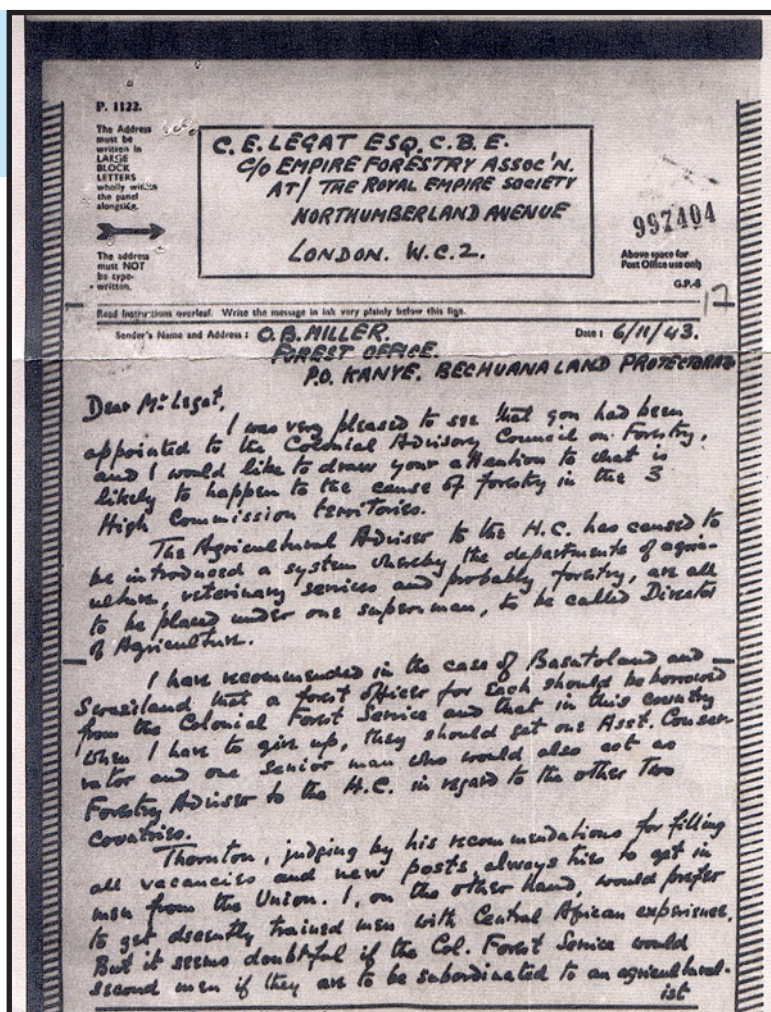 P. 1122.
The Address
must be
written in
LARGE
BLOCK
LETTERS
wholly within
the panel
alongside.
The address
must NOT
be type-
written.
C. E. LEGAT ESQ. C. B. E.
C/O EMPIRE FORESTRY ASSOC'N.
AT/ THE ROYAL EMPIRE SOCIETY
NORTHUMBERLAND AVENUE
LONDON. W.C.2.
997404
Above space for
Post Office use only
G.P.-S
17
Read instructions overleaf. Write the message in ink very plainly below this line.
Sender's Name and Address: O. B. MILLER. Date: 6/11/43.
FOREST OFFICE.
P.O. KANYE. BECHUANALAND PROTECTORATE
Dear Mr Legat,
I was very pleased to see that you had been
appointed to the Colonial Advisory Council on Forestry,
and I would like to draw your attention to what is
likely to happen to the cause of forestry in the 3
High Commission territories.
The Agricultural Adviser to the H.C. has caused to
be introduced a system whereby the departments of agric-
ulture, veterinary services and probably forestry, are all
to be placed under one superman, to be called Director
of Agriculture.
I have recommended in the case of Basutoland and
Swaziland that a forest officer for each should be borrowed
from the Colonial Forest Service and that in this country
when I have to give up, they should get one Asst. Conser-
vator and one senior man who would also act as
Forestry Adviser to the H.C. in regard to the other two
countries.
Thornton, judging by his recommendations for filling
all vacancies and new posts, always tries to get in
men from the Union. I, on the other hand, would prefer
to get decently trained men with Central African experience.
But it seems doubtful if the Col. Forest Service would
second men if they are to be subordinated to an agricultural-
ist